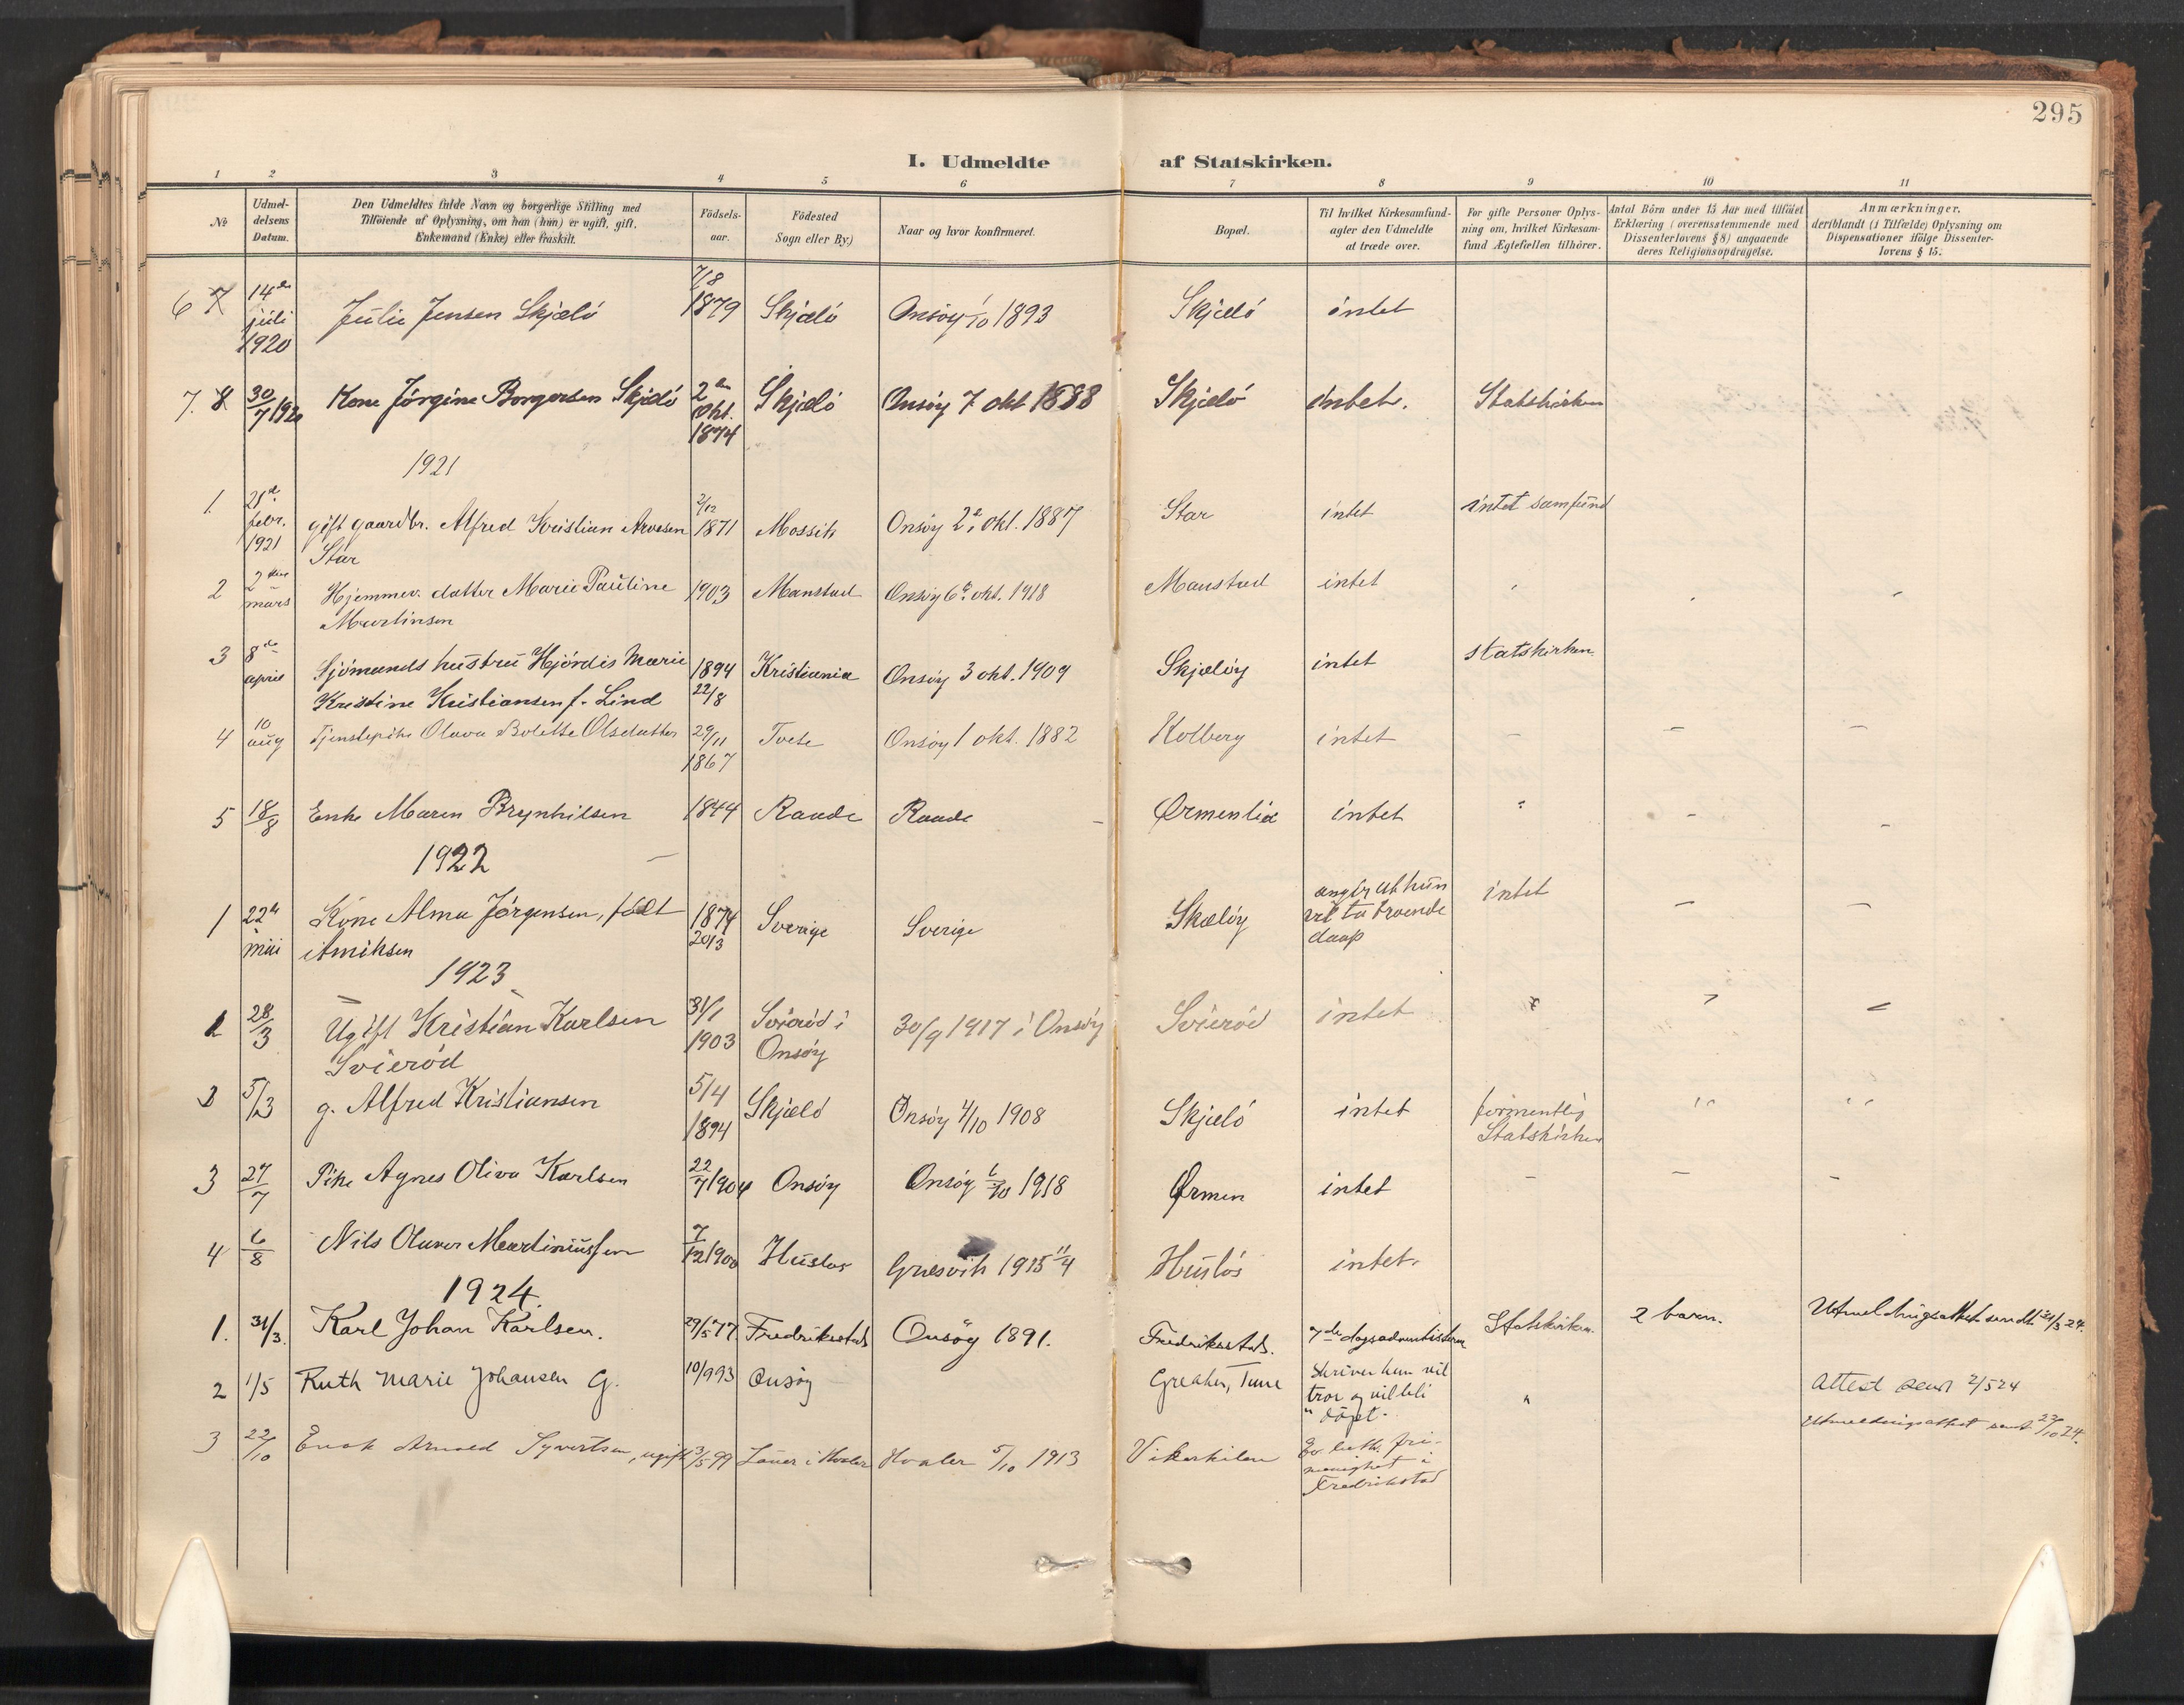 295
I. Udmeldte af Statskirken.
1 2 3 4 5 6 7 8 9 10 11
№
Udmel-
delsens
Datum.
Den Udmeldtes fulde Navn og borgerlige Stilling med
Tilföiende af Oplysning, om han (hun) er ugift, gift,
Enkemand (Enke) eller fraskilt.
Födsels-
aar.
Födested
Sogn eller By.)
Naar og hvor konfirmeret.
Bopæl.
Til hvilket Kirkesamfund-
agter den Udmeldte
at træde over.
For gifte Personer Oplys-
ning om, hvilket Kirkesam-
fund Ægtefællen tilhörer.
Antal Börn under 15 Aar med tilföiet
Erklæring (overensstemmende med
Dissenterlovens § 8) angaaende
deres Religionsopdragelse.
Anmærkninger,
deriblandt (i Tilfælde) Oplysning om
Dispensationer ifölge Dissenter-
lovens § 15.
6 7 14de juli 1920 Julie Jensen Skjælö 7/8 1879 Skjælö Onsöy 1/10 1893 Skjælö intet
7. 8 30/7 1920 Kone Jörgine Borgersen Skjælö 2den okt. 1874 Skjælö Onsöy 7 okt 1888 Skjælö intet. Statskirken
1921
1 21de febr. 1921 gift gaardbr. Alfred Kristian Arvesen 2/12 1871 Mossik Onsöy 2de okt. 1887 Star intet intet samfund
Star
2 2den mars Hjemmev. datter Marie Pauline 1903 Manstad Onsöy 6te okt. 1918 Manstad intet
Martinsen
3 8de april Sjömands hustru Hjördis Marie 1894 22/8 Kristiania Onsöy 3 okt. 1909 Skjælöy intet statskirken.
Kristine Kristiansen f. Lind
4 10 aug Tjenstepike Olava Bolette Olsdatter 29/11 1867 Tvete Onsöy 1 okt. 1882 Kolberg intet - - -
5 18/8 Enke Maren Brynhilsen 1844 Raade Raade - Ørmenlia intet " - -
1922
1 22de mai Kone Alma Jörgensen, födt 1874 20/3 Sverige Sverige Skælöy angir at hun intet - -
vil ta troende
daap
1923
1 28/3 Ugift Kristian Karlsen 31/1 1903 Svieröd i Onsöy 30/9 1917 i Onsöy Svieröd intet
Svieröd
2 5/3 g. Alfred Kristiansen 5/4 1894 Skjælö Onsöy 4/10 1908 Skjælö intet formentlig " "
Statskirken
3 27/7 Pike Agnes Oliva Karlsen 22/7 1904 Onsöy Onsöy 6/10 1918 Ørmen intet - - -
4 6/8 Nils Oluner Martiniussen 7/12 1900 Huslos Gresvik 1915 11/4 Huslös intet.
1924.
1. 31/3. Karl Johan Karlsen. 29/5 77. Fredrikstad Onsöy 1891. Fredrikstad. 7de dagsadventisterne Statskirken. 2 barn. Utmeldingsattest sendt 31/3 24.
2 1/5 Ruth Marie Johansen G. 10/9 93 Onsöy Greaker, Tune Skriver hun vil " Attest sendt 2/5 24
tror og vil bli
" döpt.
3 22/10 Enok Arnold Syvertsen, ugift 3/5 99 Lauer i Hvaler Hvaler 5/10 1913 Vikerkilen Ev. luth. fri- Utmeldingsattest sendt 22/10 24.
menighet i
Fredrikstad